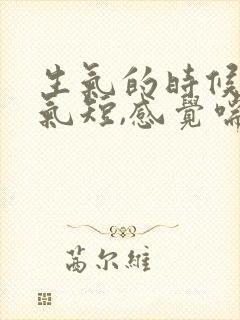 生氣的時候
氣短,感覺喘
茜尔維